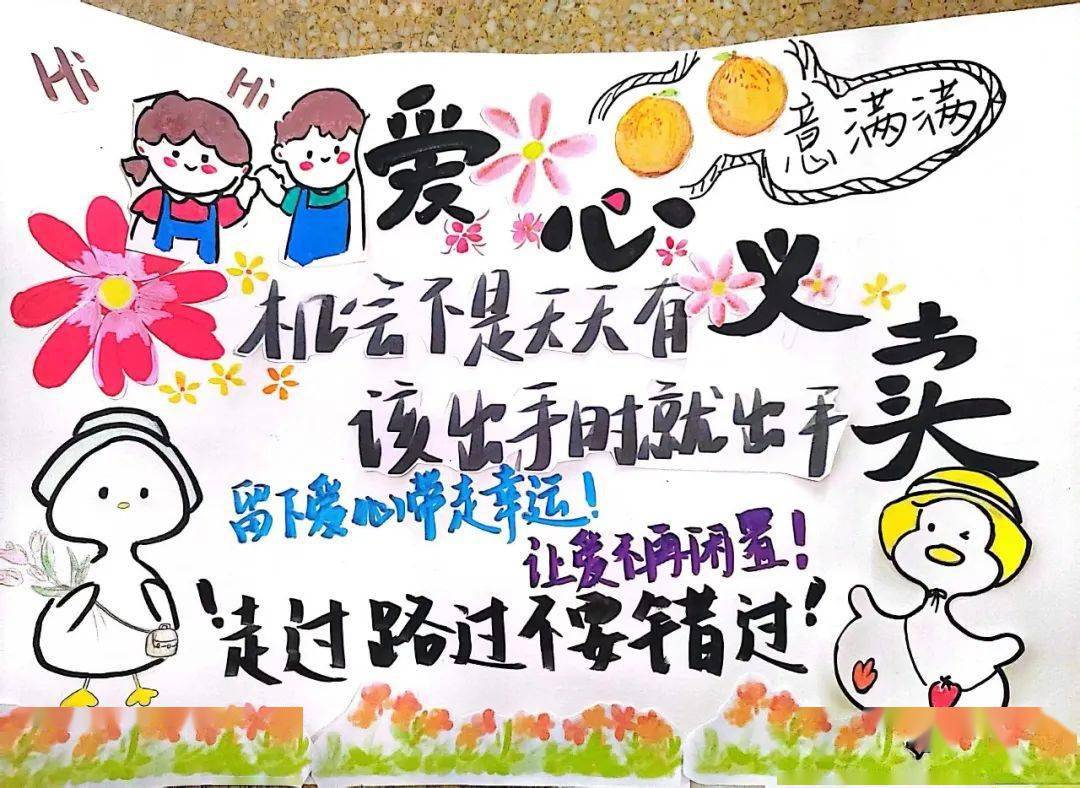 Hi
Hi
爱心义卖
意满满
机会不是天天有
该出手时就出手
留下爱心带走幸运!
让爱不再闲置!
!走过路过不要错过!